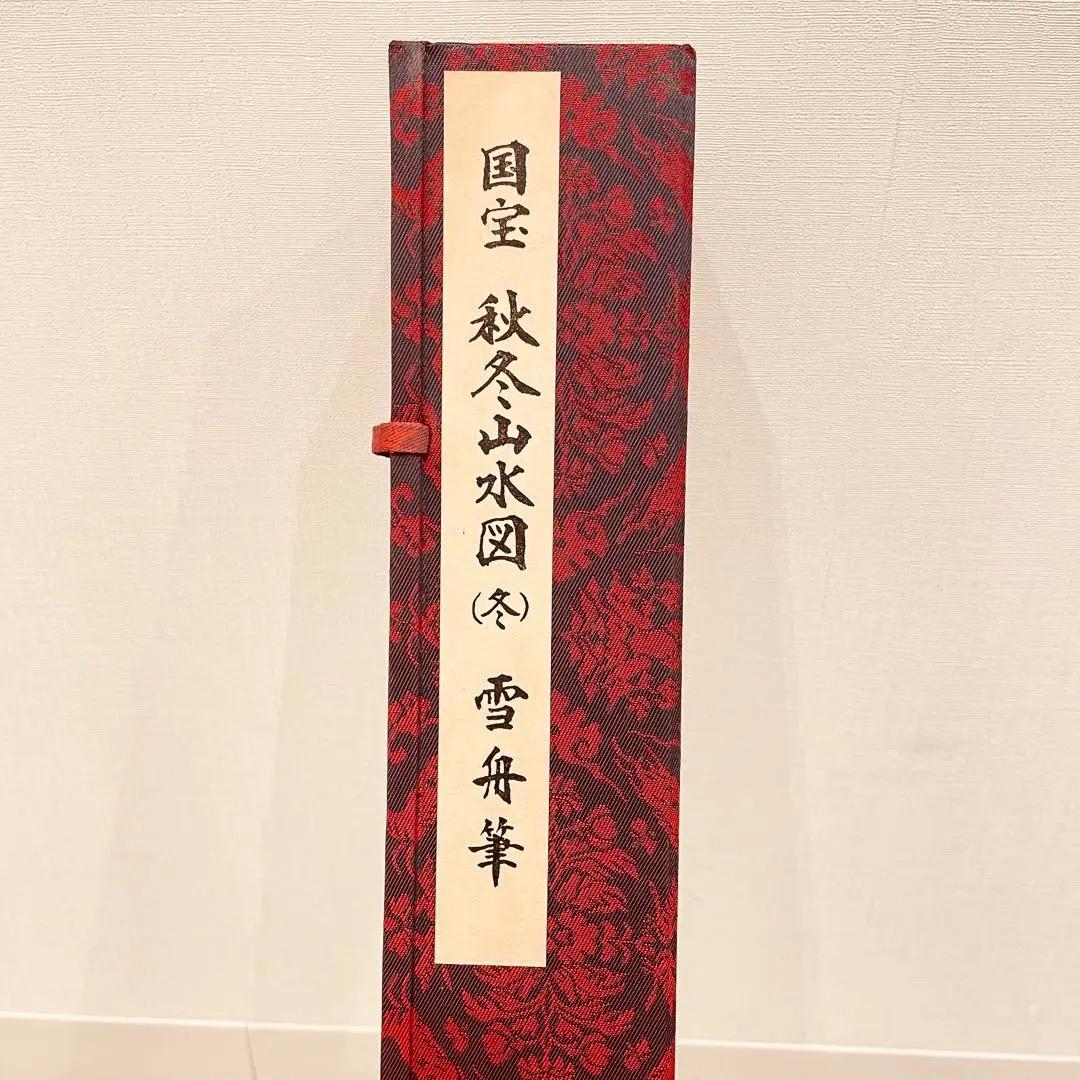 国宝 秋冬山水図(冬) 雪舟筆